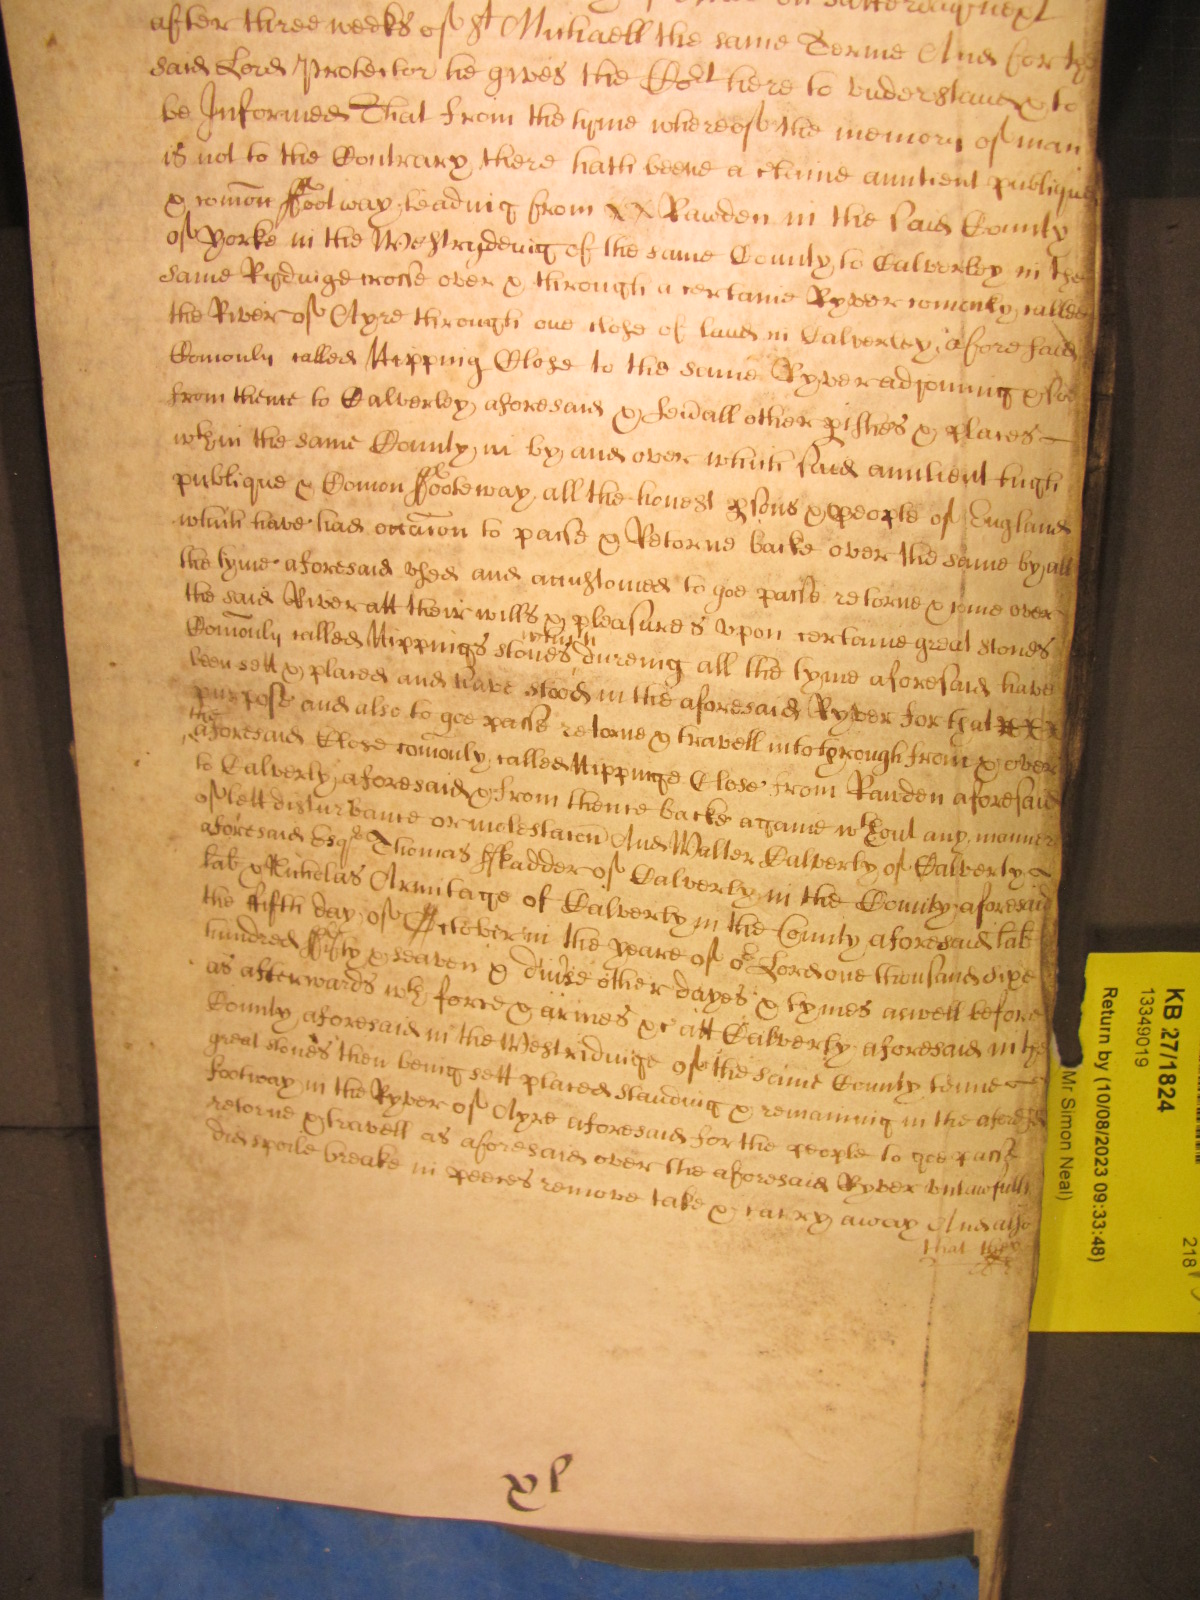 on Satterday next
after three weeks of St Michaell the same Terme And for the
said Lord Protector he gives the Cort here to understand & to
be Informed That from the tyme whereof the memory of man
is not to the Contrary there hath beene a certaine auntient publique
& comon ffootway leading from xx Rawden in the said County
of Yorke in the Westrydeing of the same County to Calverley in the
same Rydinge crosse over & through a certaine Ryver comonly called
the River of Ayre through one close of land in Calverley aforesaid
Comonly called Hipping Close to the same Ryver adjoyning & soe
from thence to Calverley aforesaid & sevall other pishes & places
wthin the same County in by and over which said auntient high
publique & Comon ffooteway all the honest psons & people of England
which have had occasion to passe & Retorne backe over the same by all
the tyme aforesaid used and accustomed to goe passe retorne & come over
the said River att their wills & pleasures upon certaine great stones
Comonly called Hippings stones which dureing all the tyme aforesaid have
been sett & placed and have stood in the aforesaid Ryver for that xxx
purpose and also to goe passe retorne & travell into through from & over
the aforesaid Close comonly called Hippinge Close from Rawden aforesaid
to Calverly aforesaid & from thence backe againe wthout any manner
of lett disturbance or molestacon And Walter Calverly of Calverly
aforesaid Esqr Thomas of Calverly in the County aforesaid
lab & Nicholas Armitage of Calverly in the County aforesaid lab
the fifth day of October in the yeare of or Lord one thousand sixe
hundred ffifty & seaven & divse other dayes & tymes aswell before
as afterwards wth force & armes &c att Calverly aforesaid in the
County aforesaid in the Westridinge of the same County tenne
great stones then being sett placed standing & remaining in the aforesd
footway in the Ryver of Ayre aforesaid for the people to goe passe
retorne & travell as aforesaid over the aforesaid Ryver unlawfully
did spoile breake in peeces remove take & carry away And also
that the
xl
KB 27/1824
13349019
Return by (10/08/2023 09:33:48)
Mr Simon Neal)
218